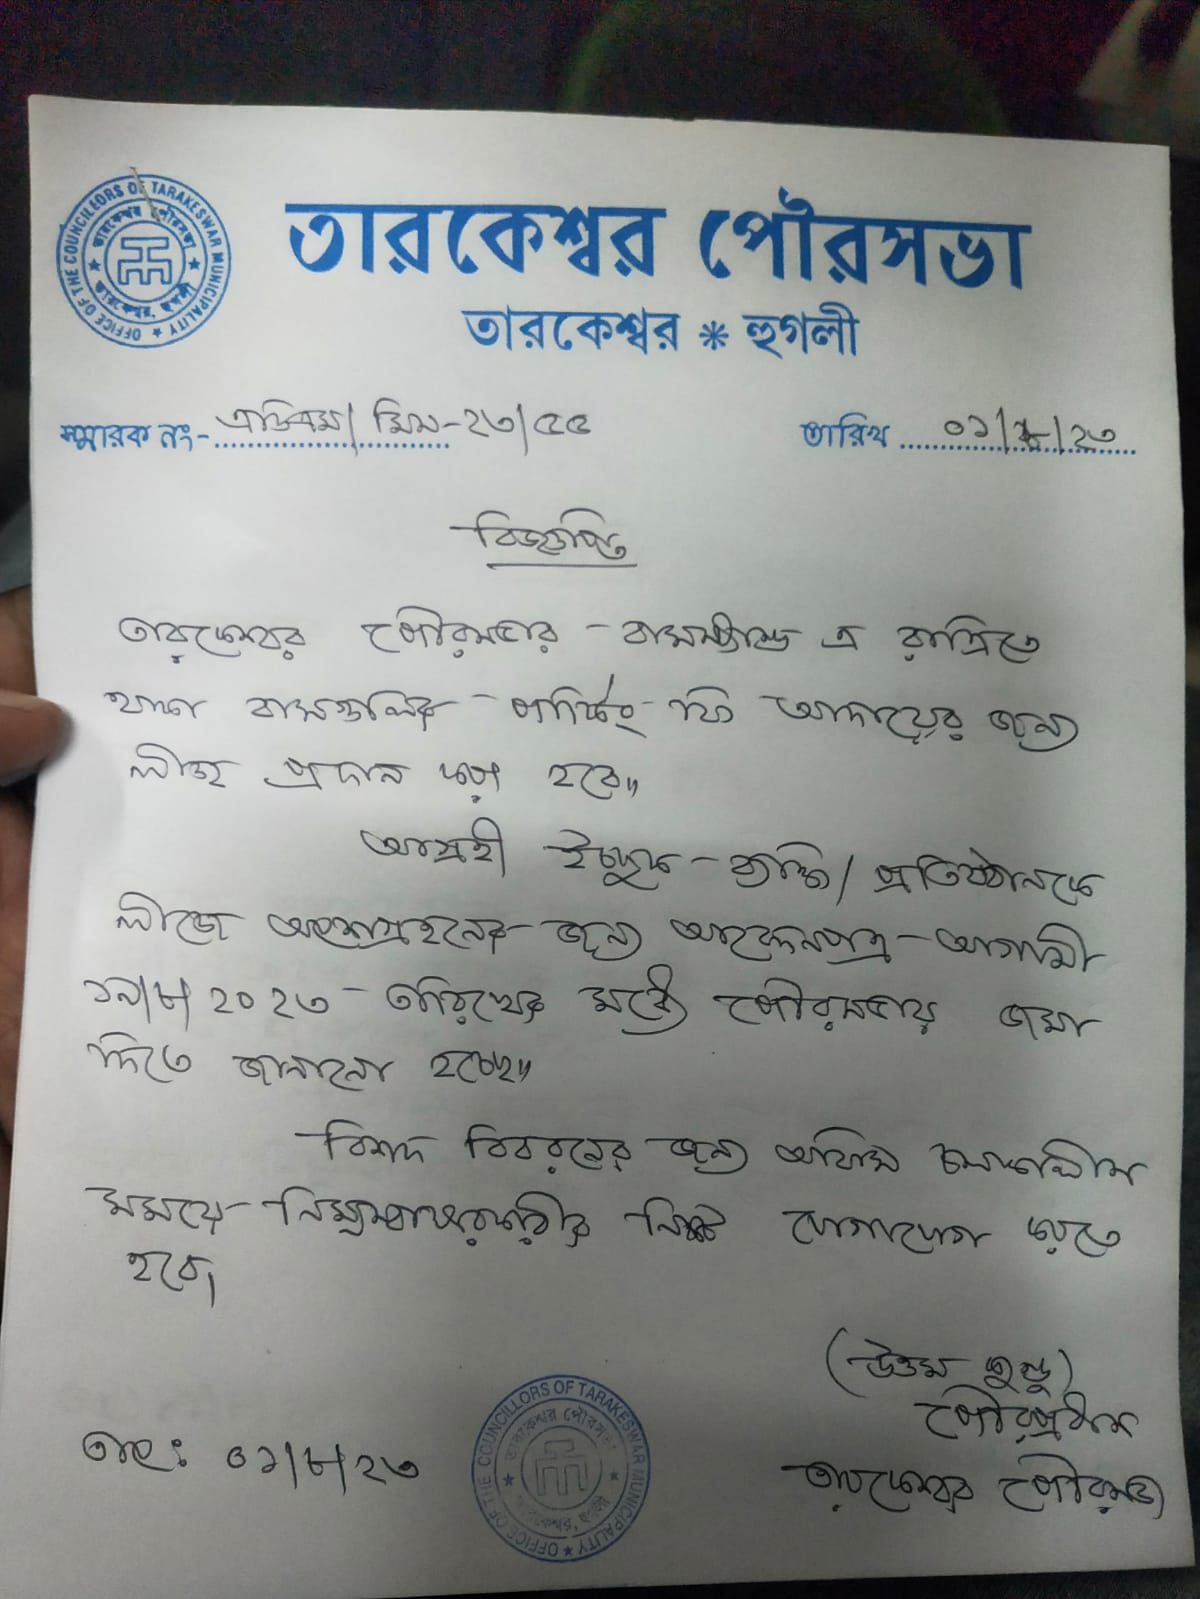 OFFICE OF THE COUNCILLORS OF TARAKESWAR MUNICIPALITY
তারকেশ্বর পৌরসভা
তারকেশ্বর, হুগলী
তারকেশ্বর পৌরসভা
তারকেশ্বর * হুগলী
স্মারক নং- এডিএম/মিস-২৩/৫৫
তারিখ ০১/৮/২৩
বিজ্ঞপ্তি
তারকেশ্বর পৌরসভার বাসস্ট্যান্ড এ রাত্রিতে
থাকা বাসগুলির পার্কিং ফি আদায়ের জন্য
লীজ প্রদান করা হবে॥
আগ্রহী ইচ্ছুক ব্যক্তি/প্রতিষ্ঠানকে
লীজে অংশগ্রহনের জন্য আবেদনপত্র আগামী
১৭/৮/২০২৩ তারিখের মধ্যে পৌরসভায় জমা
দিতে জানানো হচ্ছে॥
বিশদ বিবরনের জন্য অফিস চলাকালীন
সময়ে নিম্নস্বাক্ষরকারীর নিকট যোগাযোগ করতে
হবে।
(উত্তম কুন্ডু)
পৌরপ্রধান
তারকেশ্বর পৌরসভা
তাং: ০১/৮/২৩
OFFICE OF THE COUNCILLORS OF TARAKESWAR MUNICIPALITY
তারকেশ্বর পৌরসভা
তারকেশ্বর, হুগলী